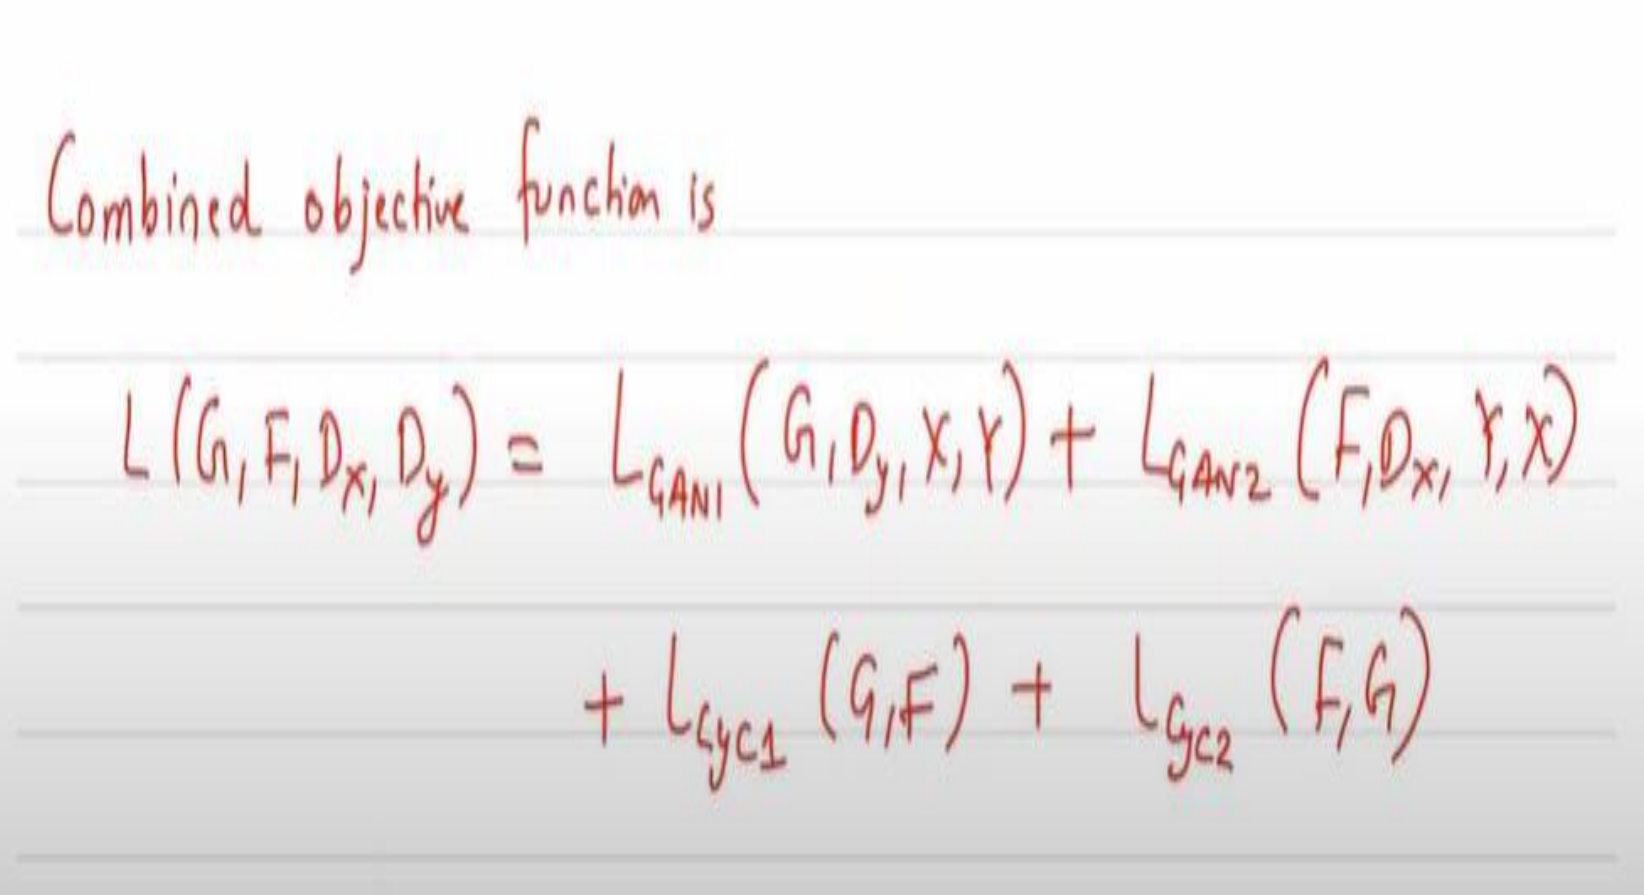 Combined objective function is
L(G, F, Dx, Dy) = LGAN1 (G, Dy, X, Y) + LGAN2 (F, Dx, Y, X)
+ LCyC1 (G, F) + LCyC2 (F, G)